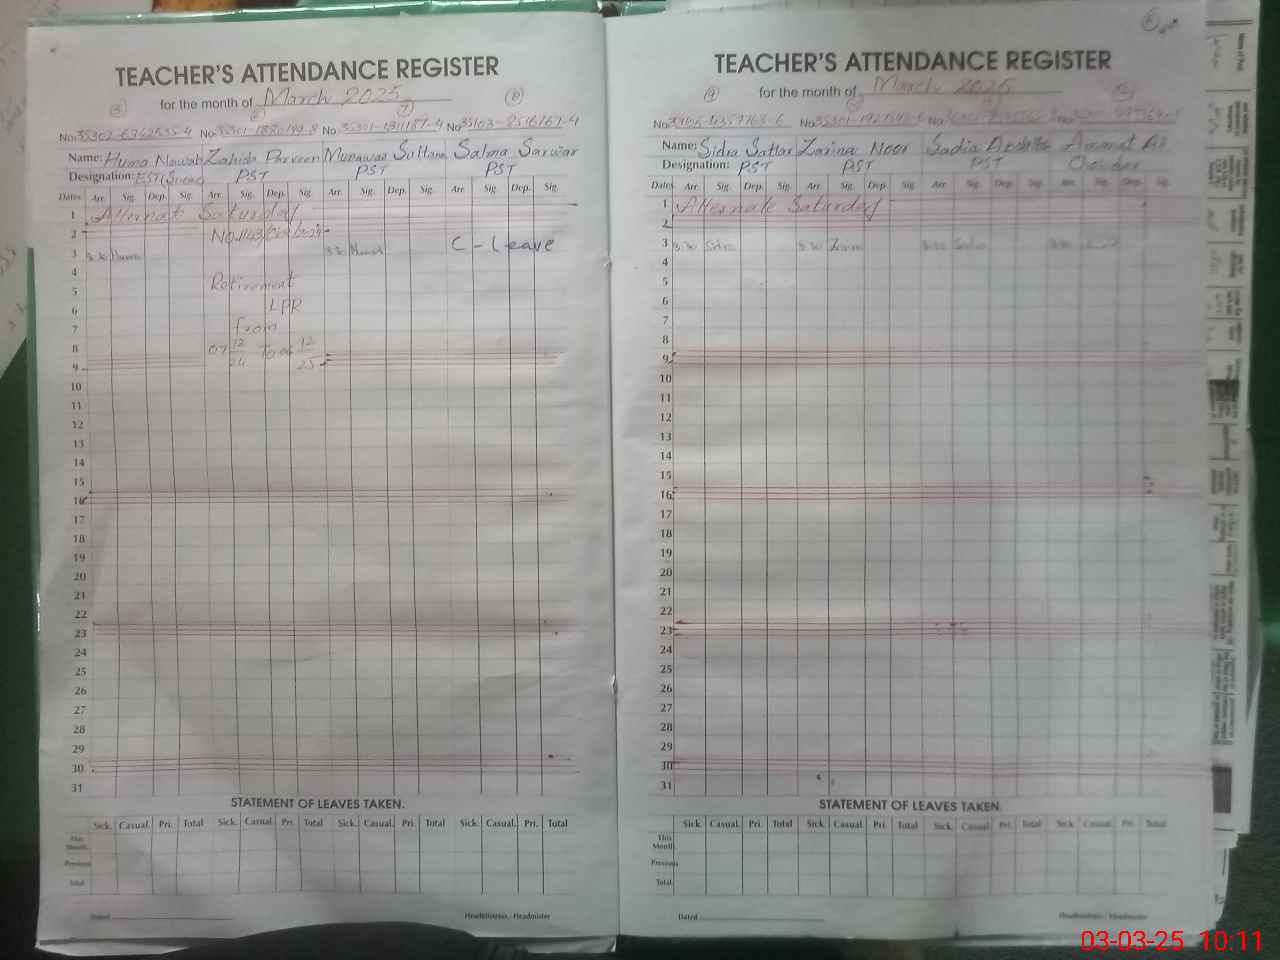 TEACHER'S ATTENDANCE REGISTER
for the month of March 2025
5 6 7 8
No. 35302-6362535-4 No. 35301-1880149-8 No. 35301-1311187-4 No. 35103-8516167-4
Name: Huma Nawab Zahida Parveen Munawar Sultana Salma Sarwar
Designation: EST(Science) PST PST PST
Dates Arr. Sig. Dep. Sig. Arr. Sig. Dep. Sig. Arr. Sig. Dep. Sig. Arr. Sig. Dep. Sig.
1 Alternate Saturday
2 No.1143
3 8:30 Huma 8:30 C - Leave
4
5 Retirement
6 LPR
7 from
8 07 12/24 To 06 12/25
9
10
11
12
13
14
15
16
17
18
19
20
21
22
23
24
25
26
27
28
29
30
31
STATEMENT OF LEAVES TAKEN.
Sick. Casual. Pri. Total Sick. Casual Pri. Total Sick. Casual. Pri. Total Sick. Casual. Pri. Total
This Month.
Previous
Total
Dated Headmistress / Headmister
TEACHER'S ATTENDANCE REGISTER
for the month of March 2025
9
No. No. 35301
Name: Sidra Sattar Zarina Noor Sadia
Designation: PST PST PST
Dates Arr. Sig. Dep. Sig. Arr. Sig. Dep. Sig. Arr. Sig. Dep. Sig. Arr. Sig. Dep. Sig.
1 Alternate Saturday
2
3 8:30 Sidra 8:30 Zarina 8:30 Sadia 8:30
4
5
6
7
8
9
10
11
12
13
14
15
16
17
18
19
20
21
22
23
24
25
26
27
28
29
30
31
STATEMENT OF LEAVES TAKEN.
Sick. Casual. Pri. Total Sick. Casual. Pri. Total Sick. Casual. Pri. Total Sick. Casual. Pri. Total
This Month.
Previous
Total
Dated Headmistress / Headmister
03-03-25 10:11